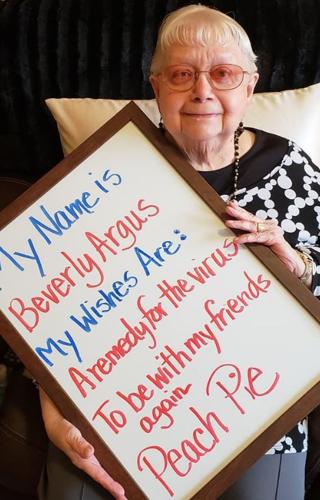 My Name is
Beverly Argus
My Wishes Are:
A remedy for the virus
To be with my friends
again
Peach Pie